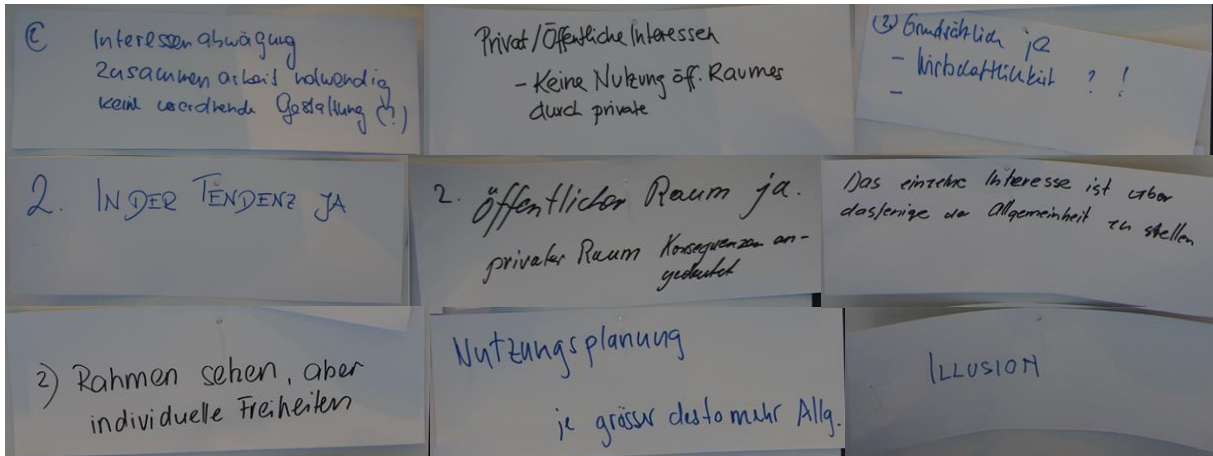 2 Interessenabwägung
Zusammenarbeit notwendig
keine Gestaltung (?)
Privat/Öffentliche Interessen
- Keine Nutzung öff. Raumes
durch private
(2) Grundsätzlich ja
- Wirtschaftlichkeit ? !
-
2. IN DER TENDENZ JA
2. öffentlicher Raum ja.
privater Raum Konsequenzen an-
gedeutet
Das einzelne Interesse ist über
dasjenige der Allgemeinheit zu stellen
2) Rahmen sehen, aber
individuelle Freiheiten
Nutzungsplanung
je grösser desto mehr Allg.
ILLUSION